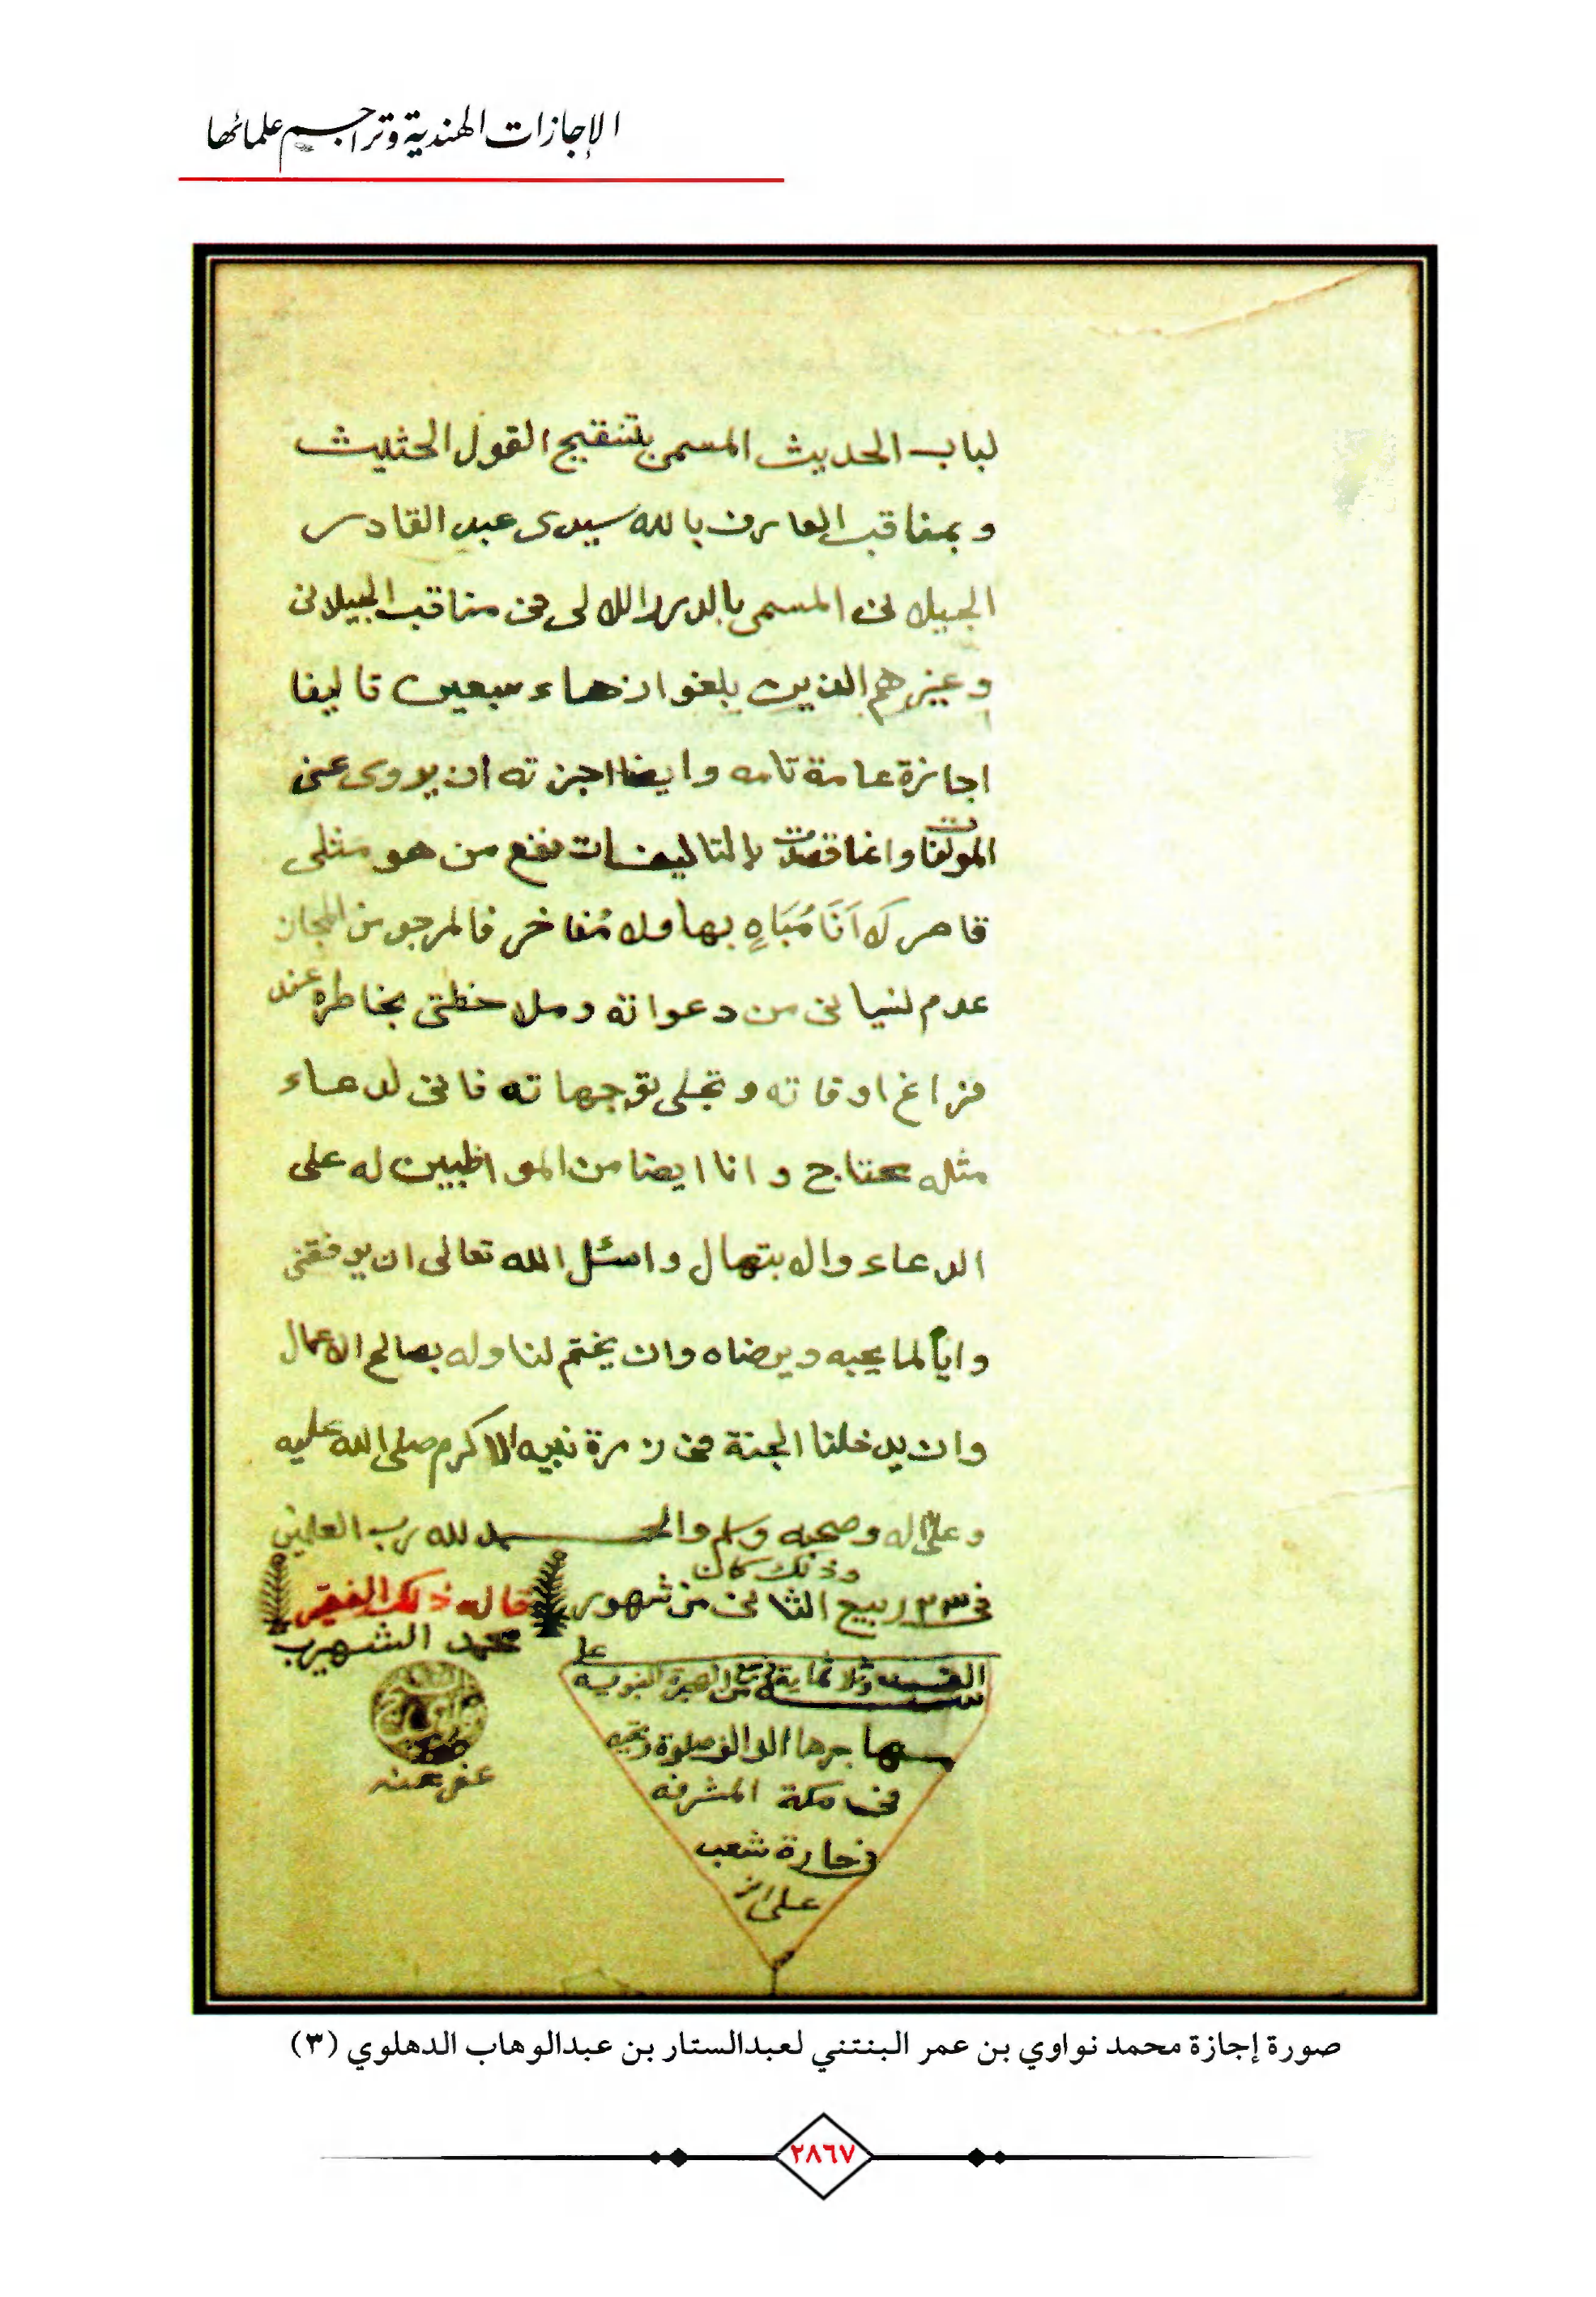 الإجازات الهندية وتراجم علمائها
لباب الحديث المسمى بتنقيح القول الحثيث
وبمناقب العارف بالله سيدى عبد القادر
الجيلانى المسمى بالدرر اللالى فى مناقب الجيلانى
وغيرهم الذين بلغوا زهاء سبعين تاليفا
اجازة عامة تامه وايضا اجزته ان يروى عنى
المولفات وانما قصدت بالتاليفات نفع من هو مثلى
قاصر لَا اَنَا مُبَاهٍ بها ولا مُفاخر فالمرجو من المجاز
عدم نسيانى من دعواته وملاحظتى بخاطره عند
فراغ اوقاته وتجلى توجهاته فانى لدعاء
مثله محتاج وانا ايضا من المواظبين له على
الدعاء والابتهال واسئل الله تعالى ان يوفقنى
واياه لما يحبه ويرضاه وان يختم لنا وله بصالح الاعمال
وان يدخلنا الجنة فى زمرة نبيه الاكرم صلى الله عليه
وعلى اله وصحبه وسلم والحمد لله رب العلمين
وذلك كان
فى ٢٣ ربيع الثانى من شهور
قاله ذلك الفقير
محمد الشهير ب
وثلاثماية من الهجرة النبوية على
مهاجرها الف الف صلوة وتحيه
فى مكة المشرفه
فى حارة شعب
على
عفى عنه
صورة إجازة محمد نواوي بن عمر البنتني لعبدالستار بن عبدالوهاب الدهلوي (٣)
٢٨٦٧